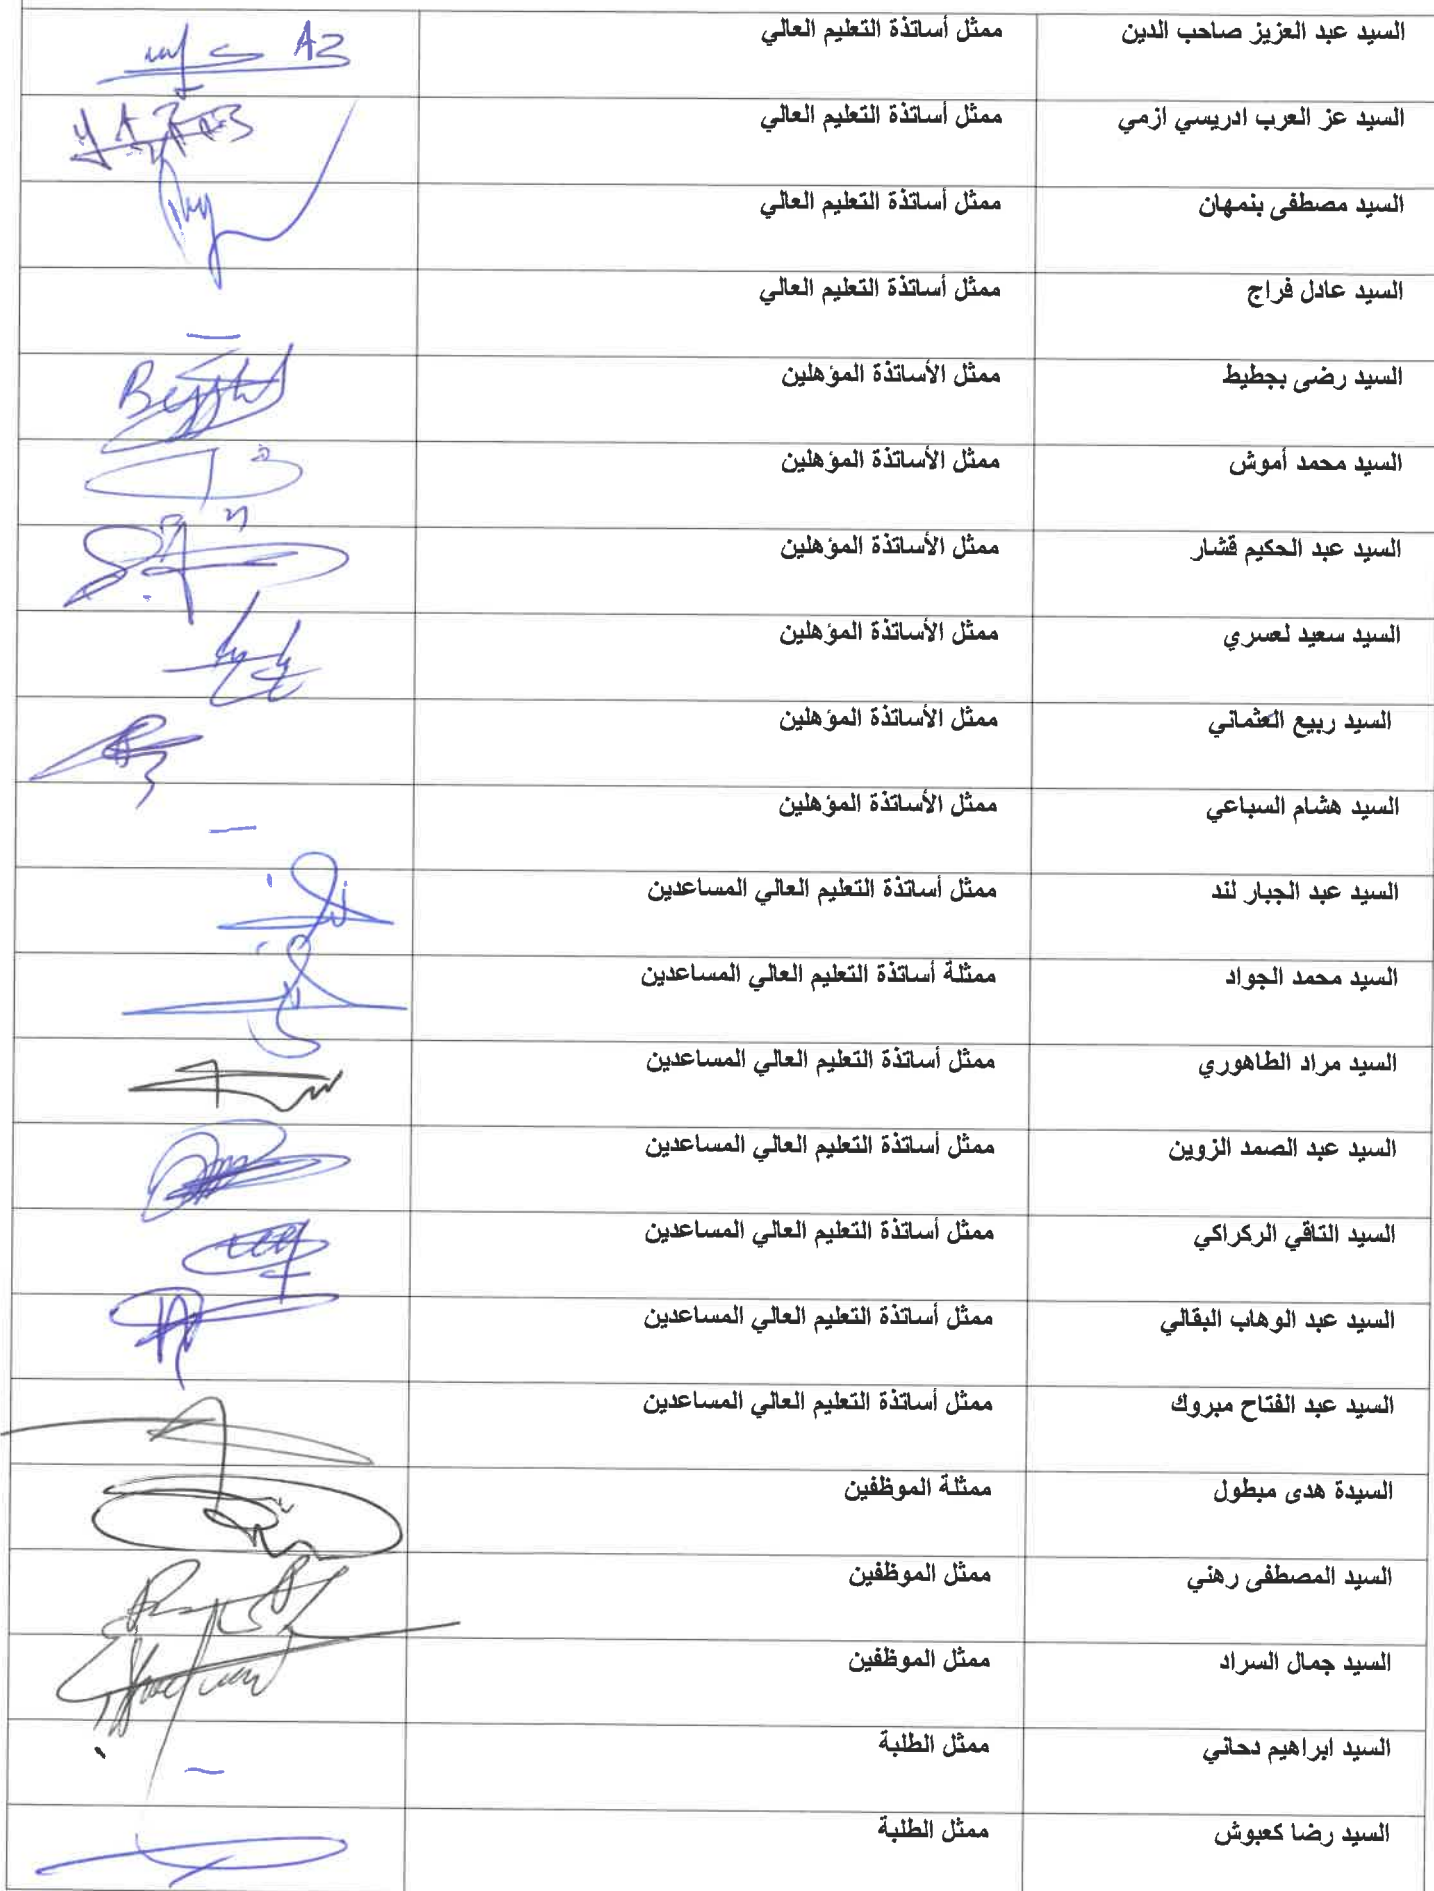 السيد عبد العزيز صاحب الدين ممثل أساتذة التعليم العالي
السيد عز العرب ادريسي ازمي ممثل أساتذة التعليم العالي
السيد مصطفى بنمهان ممثل أساتذة التعليم العالي
السيد عادل فراج ممثل أساتذة التعليم العالي
السيد رضى بجطيط ممثل الأساتذة المؤهلين
السيد محمد أموش ممثل الأساتذة المؤهلين
السيد عبد الحكيم قشار ممثل الأساتذة المؤهلين
السيد سعيد لعسري ممثل الأساتذة المؤهلين
السيد ربيع العثماني ممثل الأساتذة المؤهلين
السيد هشام السباعي ممثل الأساتذة المؤهلين
السيد عبد الجبار لند ممثل أساتذة التعليم العالي المساعدين
السيد محمد الجواد ممثلة أساتذة التعليم العالي المساعدين
السيد مراد الطاهوري ممثل أساتذة التعليم العالي المساعدين
السيد عبد الصمد الزوين ممثل أساتذة التعليم العالي المساعدين
السيد التاقي الركراكي ممثل أساتذة التعليم العالي المساعدين
السيد عبد الوهاب البقالي ممثل أساتذة التعليم العالي المساعدين
السيد عبد الفتاح مبروك ممثل أساتذة التعليم العالي المساعدين
السيدة هدى مبطول ممثلة الموظفين
السيد المصطفى رهني ممثل الموظفين
السيد جمال السراد ممثل الموظفين
السيد ابراهيم دحاني ممثل الطلبة
السيد رضا كعبوش ممثل الطلبة